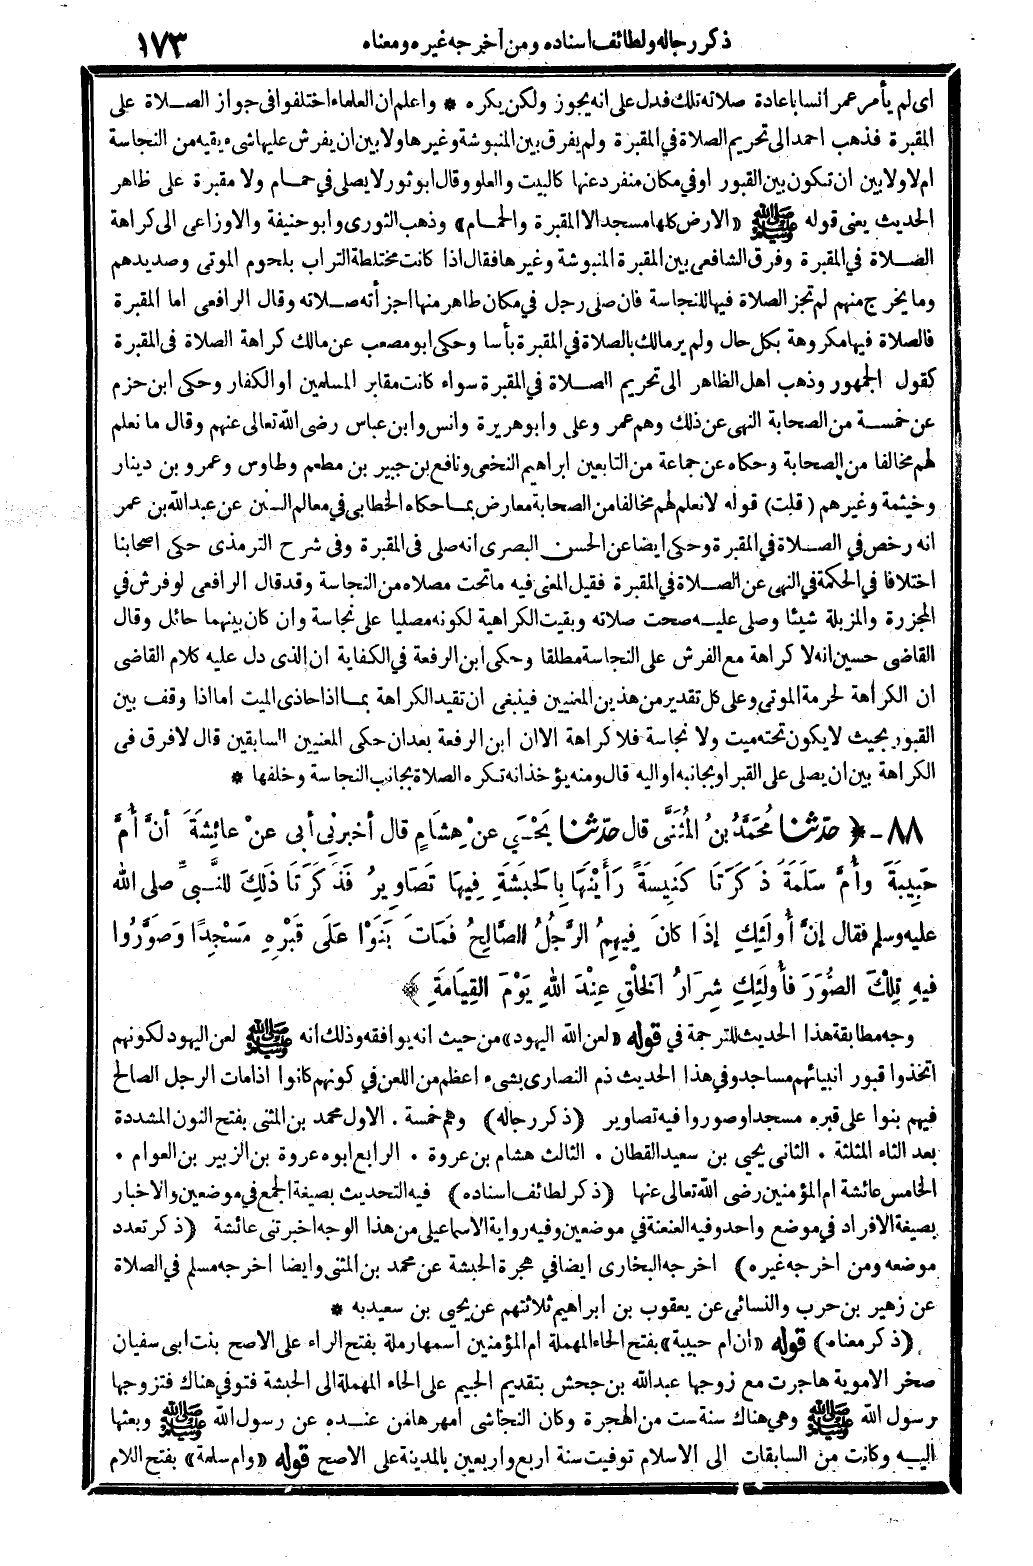 ذكر رجاله ولطائف اسناده ومن أخرجه غيره ومعناه ١٧٣
اى لم يأمر عمر انسا باعادة صلاته تلك فدل على انه يجوز ولكن يكره * واعلم ان العلماء اختلفوا فى جواز الصلاة على
المقبرة فذهب احمد الى تحريم الصلاة في المقبرة ولم يفرق بين المنبوشة وغيرها ولا بين ان يفرش عليها شىء يقيه من النجاسة
ام لا ولا بين ان تكون بين القبور او في مكان منفرد عنها كالبيت والعلو وقال ابو ثور لا يصلى في حمام ولا مقبرة على ظاهر
الحديث يعنى قوله ﷺ «الارض كلها مسجد الا المقبرة والحمام» وذهب الثورى وابو حنيفة والاوزاعى الى كراهة
الصلاة في المقبرة وفرق الشافعى بين المقبرة المنبوشة وغيرها فقال اذا كانت مختلطة التراب بلحوم الموتى وصديدهم
وما يخرج منهم لم تجز الصلاة فيها للنجاسة فان صلى رجل في مكان طاهر منها اجزأته صلاته وقال الرافعى اما المقبرة
فالصلاة فيها مكروهة بكل حال ولم ير مالك بالصلاة في المقبرة بأسا وحكى ابو مصعب عن مالك كراهة الصلاة فى المقبرة
كقول الجمهور وذهب اهل الظاهر الى تحريم الصلاة في المقبرة سواء كانت مقابر المسلمين او الكفار وحكى ابن حزم
عن خمسة من الصحابة النهى عن ذلك وهم عمر وعلى وابو هريرة وانس وابن عباس رضى الله تعالى عنهم وقال ما نعلم
لهم مخالفا من الصحابة وحكاه عن جماعة من التابعين ابراهيم النخعى ونافع بن جبير بن مطعم وطاوس وعمرو بن دينار
وخيثمة وغيرهم (قلت) قوله لا نعلم لهم مخالفا من الصحابة معارض بما حكاه الخطابى في معالم السنن عن عبد الله بن عمر
انه رخص في الصلاة في المقبرة وحكى ايضا عن الحسن البصرى انه صلى فى المقبرة وفى شرح الترمذى حكى اصحابنا
اختلافا في الحكمة في النهى عن الصلاة في المقبرة فقيل المعنى فيه ما تحت مصلاه من النجاسة وقد قال الرافعى لو فرش في
المجزرة والمزبلة شيئا وصلى عليه صحت صلاته وبقيت الكراهية لكونه مصليا على نجاسة وان كان بينهما حائل وقال
القاضى حسين انه لا كراهة مع الفرش على النجاسة مطلقا وحكى ابن الرفعة في الكفاية ان الذى دل عليه كلام القاضى
ان الكراهة لحرمة الموتى وعلى كل تقدير من هذين المعنيين فينبغى ان تقيد الكراهة بما اذا حاذى الميت اما اذا وقف بين
القبور بحيث لا يكون تحته ميت ولا نجاسة فلا كراهة الا ان ابن الرفعة بعد ان حكى المعنيين السابقين قال لا فرق فى
الكراهة بين ان يصلى على القبر او بجانبه او اليه قال ومنه يؤخذ انه تكره الصلاة بجانب النجاسة وخلفها *
٨٨ - ﴿ حدّثنا مُحَمَّدُ بنُ المُثَنَّى قال حدّثنا يَحْيَى عنْ هِشَامٍ قال أخبرنِي أبى عنْ عائِشَةَ أنَّ أُمَّ
حَبِيبَةَ وأُمَّ سَلَمَةَ ذَكَرَتَا كَنِيسَةً رَأَيْنَها بِالحَبشَةِ فِيهَا تَصَاوِيرُ فَذَكَرَتَا ذَلِكَ للنَّبيِّ صلى الله
عليه وسلم فقال إنَّ أُولَئِكِ إذَا كانَ فِيهِمُ الرَّجُلُ الصَّالِحُ فَمَاتَ بَنَوْا عَلَى قَبْرِهِ مَسْجِدًا وَصَوَّرُوا
فيهِ تِلْكَ الصُّوَرَ فَأُولَئِكِ شِرَارُ الخَلْقِ عِنْدَ اللهِ يَوْمَ القِيَامَةِ ﴾
وجه مطابقة هذا الحديث للترجمة في قوله «لعن الله اليهود» من حيث انه يوافقه وذلك انه ﷺ لعن اليهود لكونهم
اتخذوا قبور انبيائهم مساجد وفي هذا الحديث ذم النصارى بشىء اعظم من اللعن في كونهم كانوا اذا مات الرجل الصالح
فيهم بنوا على قبره مسجدا وصوروا فيه تصاوير (ذكر رجاله) وهم خمسة . الاول محمد بن المثنى بفتح النون المشددة
بعد الثاء المثلثة . الثانى يحيى بن سعيد القطان . الثالث هشام بن عروة . الرابع ابوه عروة بن الزبير بن العوام .
الخامس عائشة ام المؤمنين رضى الله تعالى عنها (ذكر لطائف اسناده) فيه التحديث بصيغة الجمع في موضعين والاخبار
بصيغة الافراد في موضع واحد وفيه العنعنة في موضعين وفيه رواية الاسماعيلى من هذا الوجه اخبرتنى عائشة (ذكر تعدد
موضعه ومن اخرجه غيره) اخرجه البخارى ايضا في هجرة الحبشة عن محمد بن المثنى وايضا اخرجه مسلم في الصلاة
عن زهير بن حرب والنسائى عن يعقوب بن ابراهيم ثلاثتهم عن يحيى بن سعيد به *
(ذكر معناه) قوله «ان ام حبيبة» بفتح الحاء المهملة ام المؤمنين اسمها رملة بفتح الراء على الاصح بنت ابى سفيان
صخر الاموية هاجرت مع زوجها عبد الله بن جحش بتقديم الجيم على الحاء المهملة الى الحبشة فتوفى هناك فتزوجها
رسول الله ﷺ وهى هناك سنة ست من الهجرة وكان النجاشى امهرها من عنده عن رسول الله ﷺ وبعثها
اليه وكانت من السابقات الى الاسلام توفيت سنة اربع واربعين بالمدينة على الاصح قوله «وام سلمة» بفتح اللام